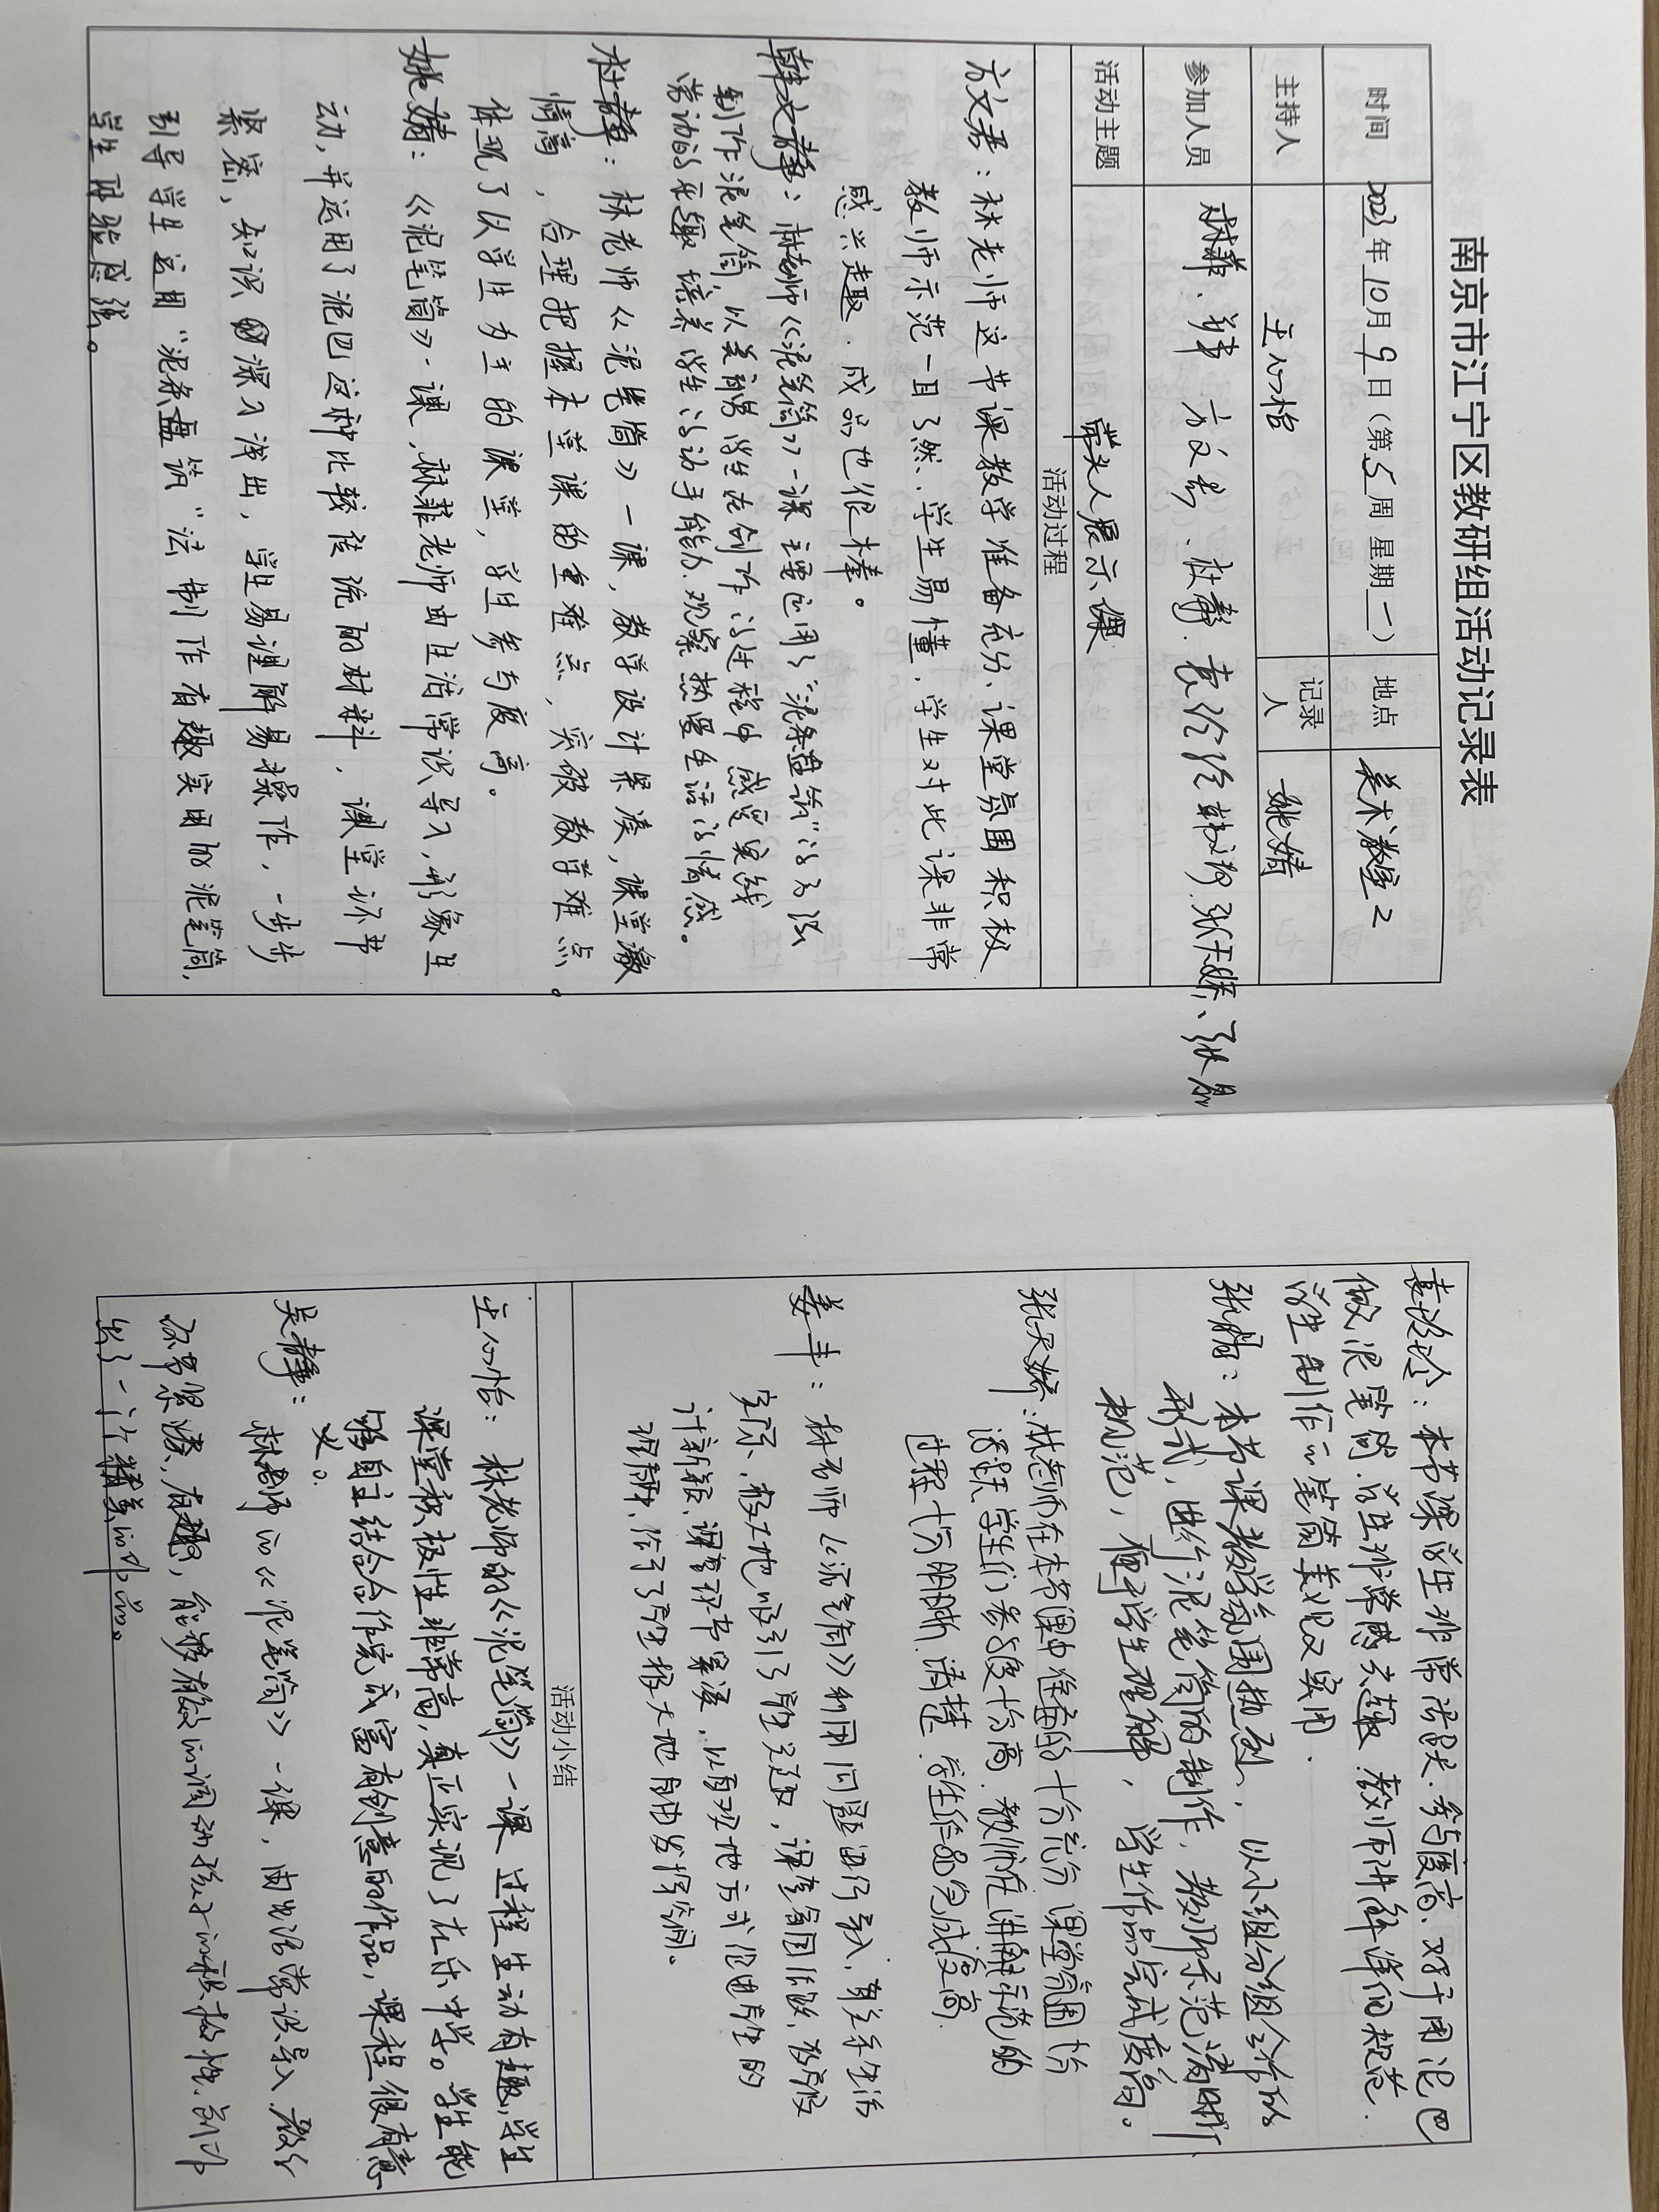 南京市江宁区教研组活动记录表
时间 2023年10月9日（第5周 星期一） 地点 美术教室2
主持人 王心怡 记录人 姚婧
参加人员 林菲、姜丰 方文君、杜静、袁玲玲 韩文静、张天娇、张晶
活动主题 带头人展示课
活动过程
方文君：林老师这节课教学准备充分、课堂氛围积极
教师示范一目了然、学生易懂，学生对此课非常
感兴趣．成品也很棒。
韩文静：林老师《泥笔筒》一课 主要运用了“泥条盘筑”的方法
制作泥笔筒，以美育劳 学生在创作的过程中 感受实践
劳动的乐趣 培养学生的动手能力、观察热爱生活的情感。
杜静：林老师《泥笔筒》一课，教学设计紧凑，课堂激
情高，合理把握本堂课的重难点，突破教学难点。
体现了以学生为主的课堂，学生参与度高。
姚婧：《泥笔筒》一课，林菲老师由生活常识导入，形象生
动，并运用了泥巴这种比较传统的材料，课堂环节
紧密，知识深入浅出，学生易理解易操作，一步步
引导学生运用“泥条盘筑”法制作有趣实用的泥笔筒，
学生体验感强。
袁玲玲：本节课学生非常活跃．参与度高．对于用泥巴
做泥笔筒．学生非常感兴趣．教师讲解详细规范．
学生制作的笔筒美观又实用．
张晶：本节课教学氛围热烈，以小组分组合作的
形式，进行泥笔筒的制作，教师示范清晰
规范，便于学生理解，学生作品完成度高。
张天娇：林老师在本节课中准备的十分充分 课堂氛围十分
活跃 学生们参与度十分高．教师在讲解示范的
过程十分明晰、清楚．学生作品完成度高．
姜丰：林老师《泥笔筒》利用问题进行导入，有关乎生活
实际，极大地吸引了学生兴趣，课堂氛围活跃，教学设
计新颖、课堂环节紧凑，以直观地方式促进学生的
理解，给予了学生极大地自由发挥空间。
活动小结
王心怡：林老师的《泥笔筒》一课 过程生动有趣，学生
课堂积极性非常高，真正实现了在乐中学。学生能
够自主结合合作完成富有创意的作品，课程很有意
义。
吴静：
林老师的《泥笔筒》一课，由生活常识导入．教学
环节紧凑，有趣，能够有效的调动孩子的积极性、创作
出了一个个精美的作品。